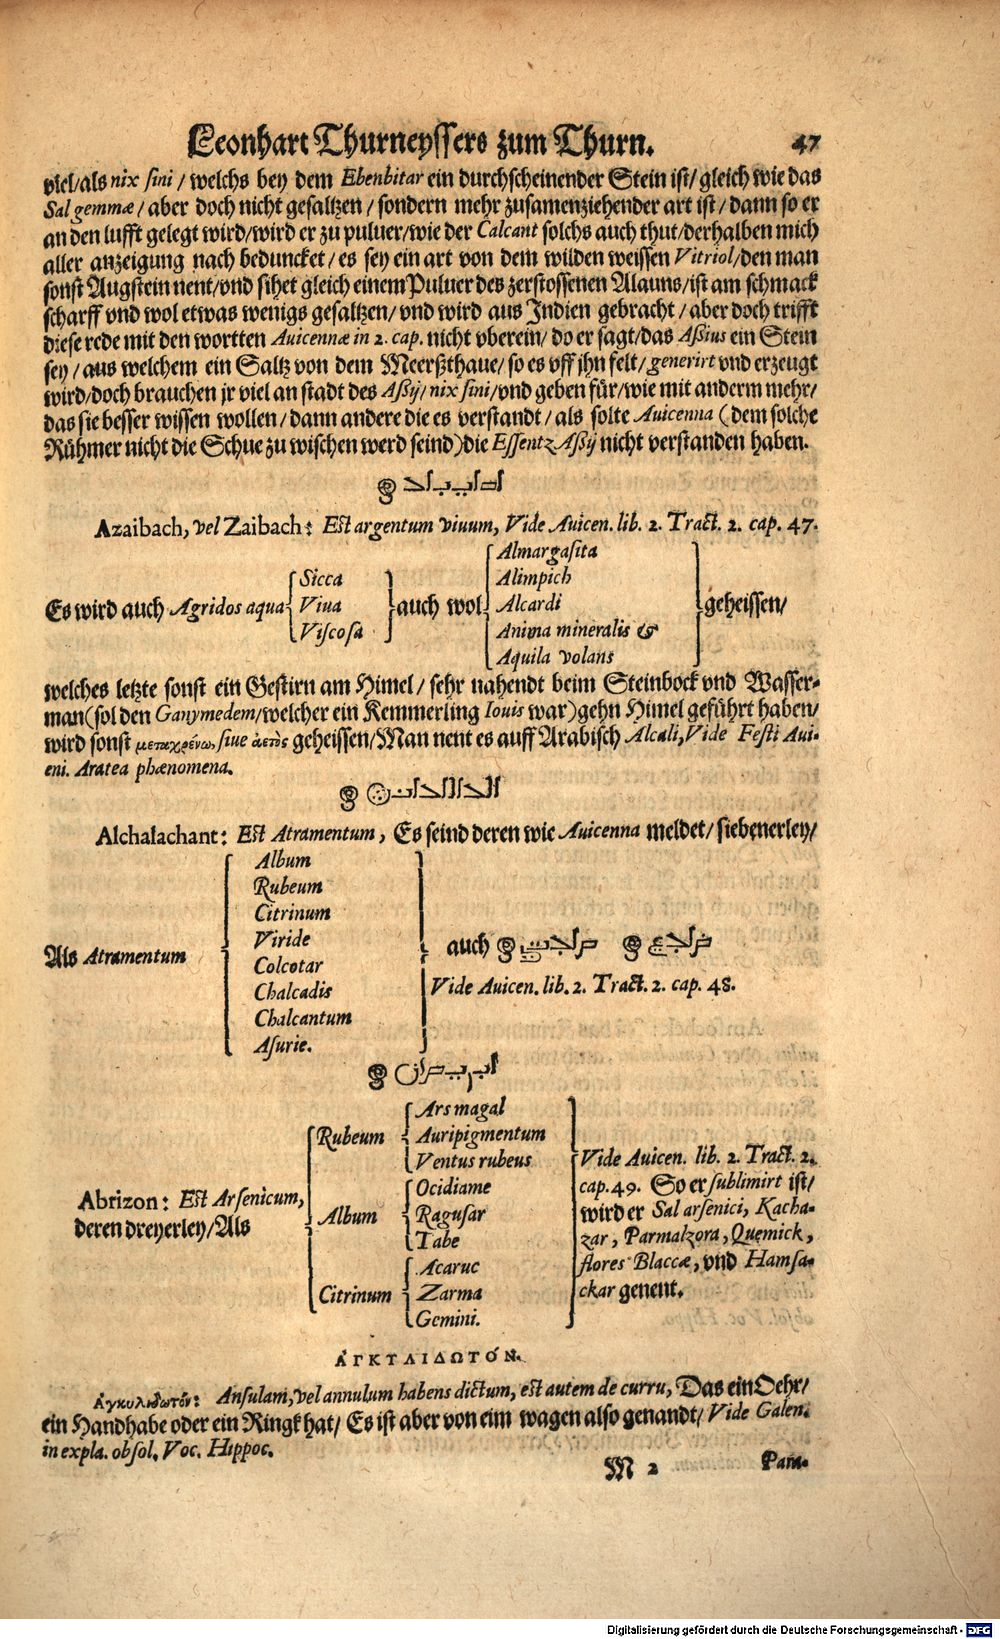 Leonhart Thurneyssers zum Thurn. 47
viel/als nix sini/ welchs bey dem Ebenbitar ein durchscheinender Stein ist/ gleich wie das
Sal gemmæ/ aber doch nicht gesaltzen/ sondern mehr zusamenziehender art ist/ dann so er
an den lufft gelegt wird/wird er zu puluer/wie der Calcant solchs auch thut/derhalben mich
aller anzeigung nach beduncket/ es sey ein art von dem wilden weissen Vitriol/den man
sonst Augstein nent/vnd sihet gleich einem Puluer des zerstossenen Alauns/ist am schmack
scharff vnd wol etwas wenigs gesaltzen/ vnd wird aus Indien gebracht/ aber doch trifft
diese rede mit den wortten Auicennæ in 2. cap. nicht vberein/ do er sagt/das Aßius ein Stein
sey/ aus welchem ein Saltz von dem Meerßthaue/ so es vff ihn felt/ generirt vnd erzeugt
wird/doch brauchen jr viel an stadt des Aßij/ nix sini/vnd geben für/wie mit anderm mehr/
das sie besser wissen wollen/ dann andere die es verstandt/ als solte Auicenna (dem solche
Rühmer nicht die Schue zu wischen werd seind)die Essentz Aßij nicht verstanden haben.
Azaibach, vel Zaibach: Est argentum viuum, Vide Auicen. lib. 2. Tract. 2. cap. 47.
Es wird auch Agridos aqua
Sicca
Viua
Viscosa
auch wol
Almargasita
Alimpich
Alcardi
Anima mineralis &
Aquila volans
geheissen/
welches letzte sonst ein Gestirn am Himel/ sehr nahendt beim Steinbock vnd Wasser-
man(sol den Ganymedem/welcher ein Kemmerling Iouis war)gehn Himel geführt haben/
wird sonst siue ἀετὸς geheissen/Man nent es auff Arabisch Alcali, Vide Festi Aui-
eni. Aratea phænomena.
Alchalachant: Est Atramentum, Es seind deren wie Auicenna meldet/ siebenerley/
Als Atramentum
Album
Rubeum
Citrinum
Viride
Colcotar
Chalcadis
Chalcantum
Asurie.
auch
Vide Auicen. lib. 2. Tract. 2. cap. 48.
Abrizon: Est Arsenicum,
deren dreyerley/Als
Rubeum
Ars magal
Auripigmentum
Ventus rubeus
Album
Ocidiame
Ragusar
Tabe
Citrinum
Acaruc
Zarma
Gemini.
Vide Auicen. lib. 2. Tract. 2.
cap. 49. So er sublimirt ist/
wird er Sal arsenici, Kacha-
zar, Parmalzora, Quemick,
flores Blaccæ, vnd Hamsa-
ckar genent.
ἈΓΚΥΛΙΔΩΤΌΝ.
Ἀγκυλιδωτόν: Ansulam, vel annulum habens dictum, est autem de curru, Das ein Oehr/
ein Handhabe oder ein Ringk hat/ Es ist aber von eim wagen also genandt/ Vide Galen.
in expla. obsol. Voc. Hippoc.
M 2 Pam-
Digitalisierung gefördert durch die Deutsche Forschungsgemeinschaft - DFG